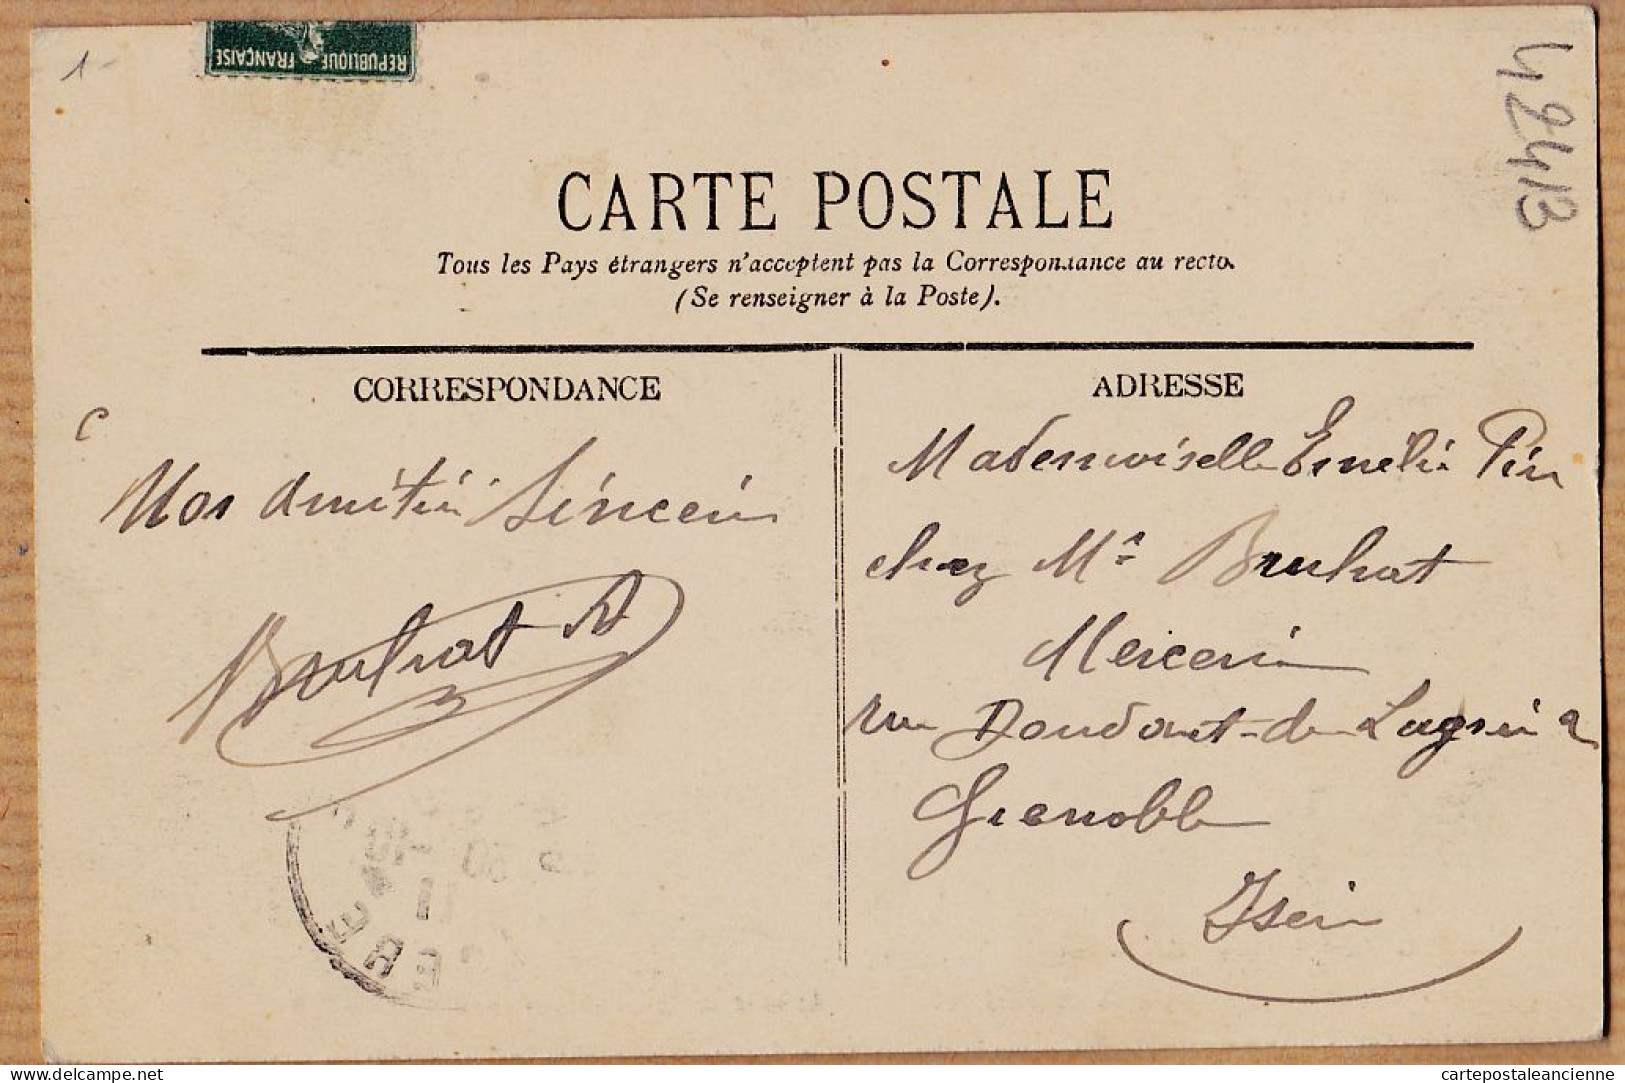 1-
RÉPUBLIQUE FRANÇAISE
42413
CARTE POSTALE
Tous les Pays étrangers n'acceptent pas la Correspondance au recto.
(Se renseigner à la Poste).
CORRESPONDANCE
ADRESSE
c
Nos amitié Sincère
Bruhat A
Mademoiselle Emélie Pin
chez Mr Bruhat
Mercerie
rue Doudart-de-Lagrée 2
Grenoble
Isère
cartepostaleancienne
www.delcampe.net